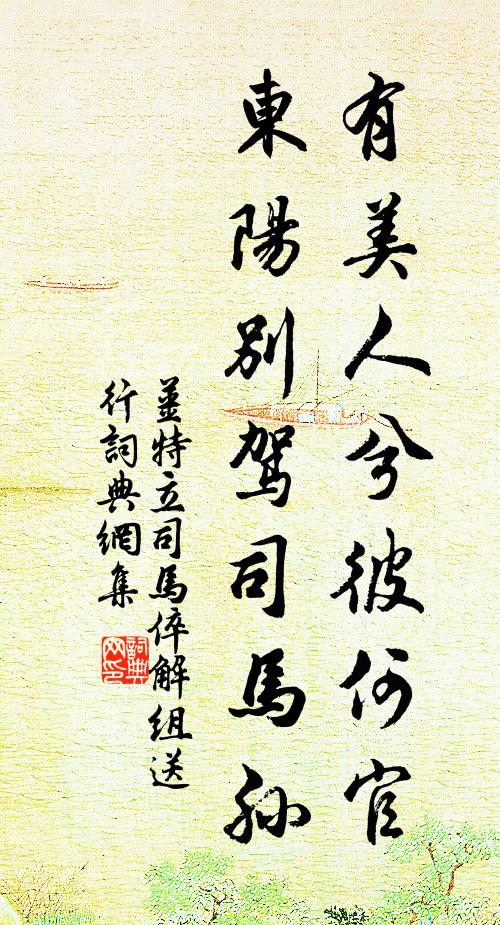 有美人兮彼何官
東陽別駕司馬孫
姜特立司馬倅解組送
行詞典網集
詞典
网印